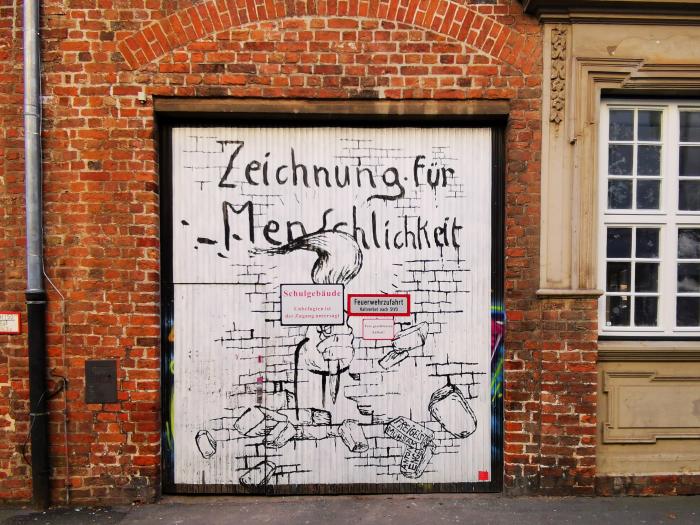 Zeichnung für
Menschlichkeit
Schulgebäude
Unbefugten ist
der Zugang untersagt
Feuerwehrzufahrt
Halteverbot nach StVO